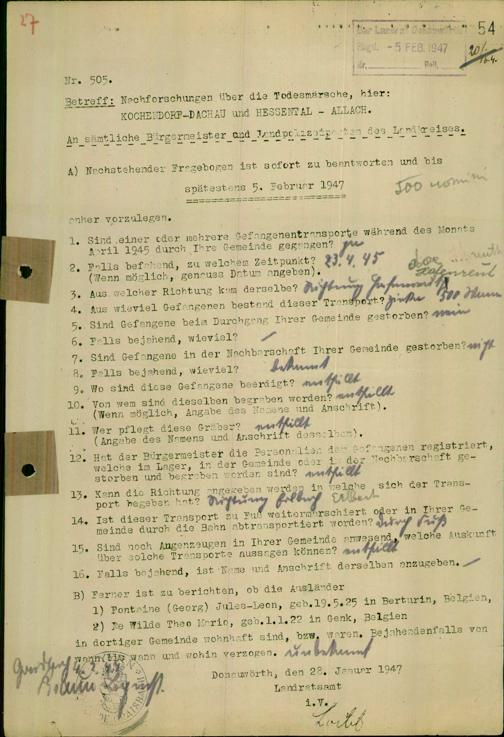 27
54
Der Landrat Donauwörth
Eingl. - 5 FEB. 1947
Nr. Beil.
Nr. 505.
500 uomini
Betreff: Nachforschungen über die Todesmärsche, hier:
KOCHENDORF-DACHAU und HESSENTAL - ALLACH.
An sämtliche Bürgermeister und Landpolizeiposten des Landkreises.
A) Nachstehender Fragebogen ist sofort zu beantworten und bis
spätestens 5. Februar 1947
anher vorzulegen.
1. Sind einer oder mehrere Gefangenentransporte während des Monats
April 1945 durch Ihre Gemeinde gegangen? ja
2. Falls bejahend, zu welchem Zeitpunkt? 23.4.45
(Wenn möglich, genaues Datum angeben).
3. Aus welcher Richtung kam derselbe? Richtung
4. Aus wieviel Gefangenen bestand dieser Transport? zirka 500 Mann
5. Sind Gefangene beim Durchgang Ihrer Gemeinde gestorben? nein
6. Falls bejahend, wieviel? -
7. Sind Gefangene in der Nachbarschaft Ihrer Gemeinde gestorben? nicht
8. Falls bejahend, wieviel? bekannt
9. Wo sind diese Gefangene beerdigt? entfällt
10. Von wem sind dieselben begraben worden? entfällt
(Wenn möglich, Angabe des Namens und Anschrift).
11. Wer pflegt diese Gräber? entfällt
(Angabe des Namens und Anschrift desselben).
12. Hat der Bürgermeister die Personalien der Gefangenen registriert,
welche im Lager, in der Gemeinde oder in der Nachbarschaft ge-
storben und begraben worden sind? entfällt
13. Kann die Richtung angegeben werden in welche sich der Trans-
port begeben hat? Richtung Erlbach Erlbach
14. Ist dieser Transport zu Fuß weitermarschiert oder in Ihrer Ge-
meinde durch die Bahn abtransportiert worden? durch Fuß
15. Sind noch Augenzeugen in Ihrer Gemeinde anwesend, welche Auskunft
über solche Transporte aussagen können? entfällt
16. Falls bejahend, ist Name und Anschrift derselben anzugeben. -
B) Ferner ist zu berichten, ob die Ausländer
1) Fontaine (Georg) Jules-Leon, geb.19.5.25 in Berturin, Belgien,
2) De Wilde Theo Mario, geb.1.1.22 in Genk, Belgien
in dortiger Gemeinde wohnhaft sind, bzw. waren. Bejahendenfalls von
wann bis wann und wohin verzogen. unbekannt
Donauwörth, den 28. Januar 1947
Landratsamt
i.V.